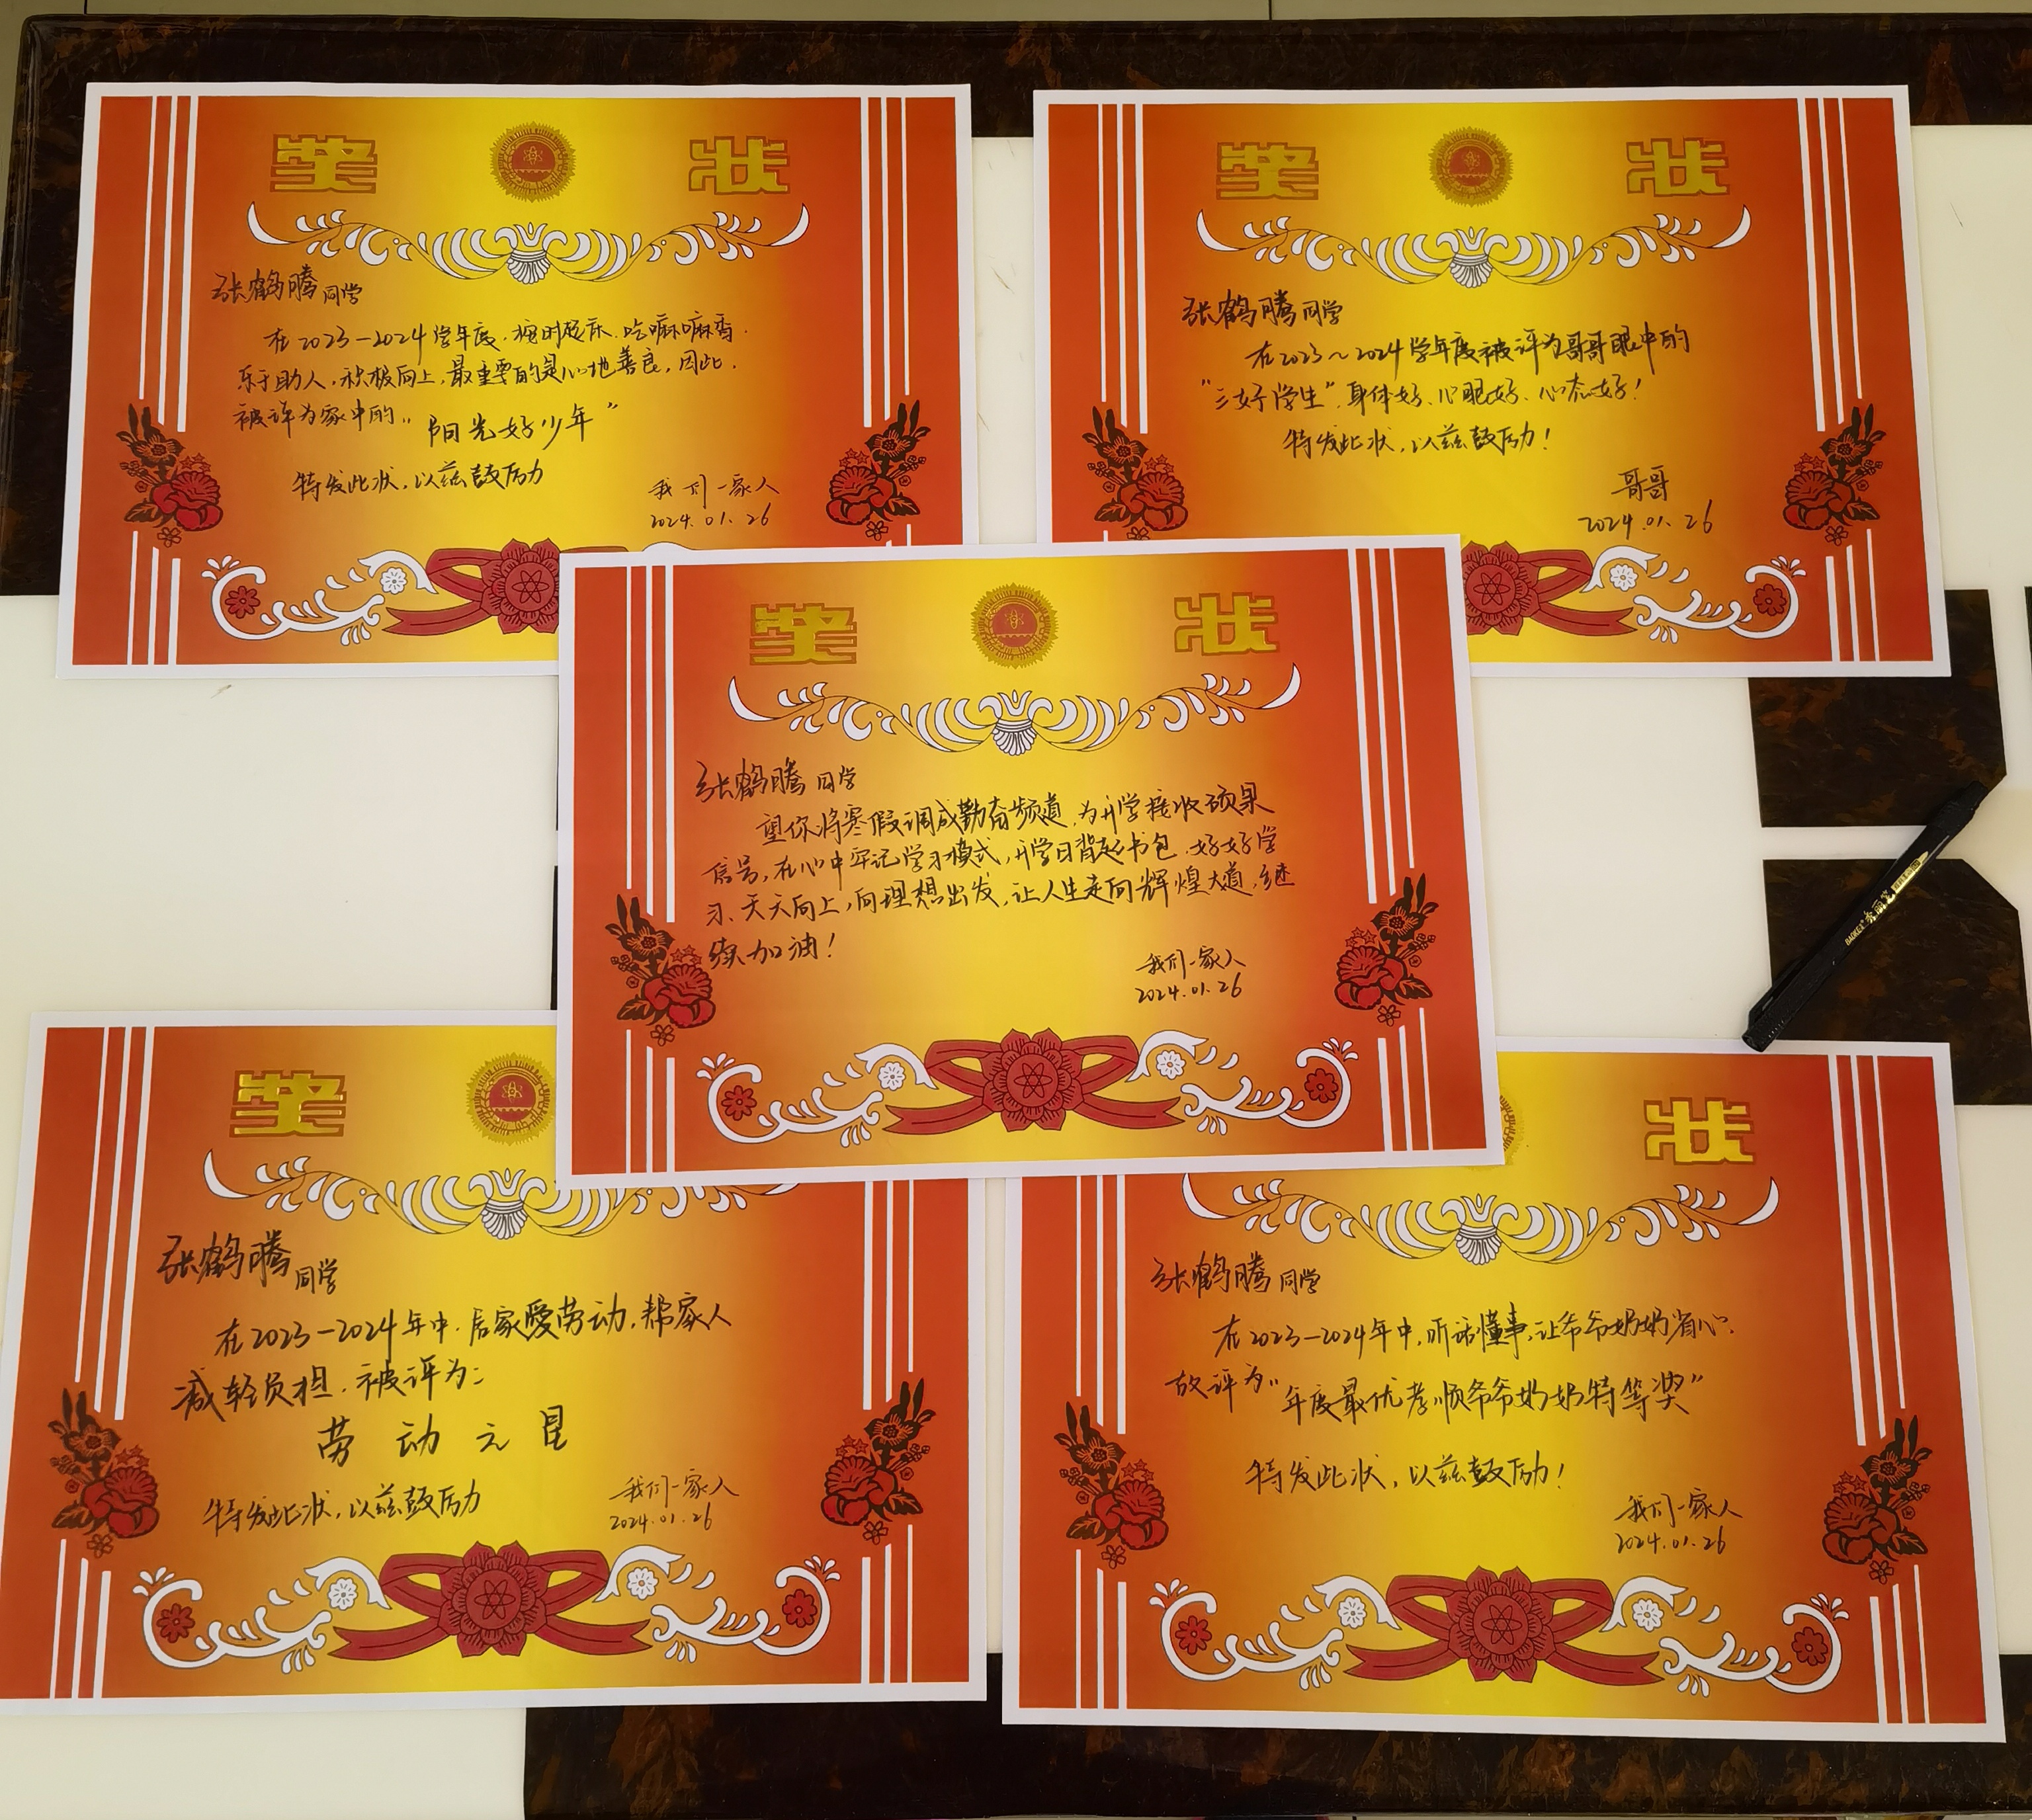 奖 状
张鹤腾同学
在2023-2024学年度,按时起床,吃嘛嘛香.
乐于助人,积极向上,最重要的是心地善良,因此,
被评为家中的“阳光好少年”
特发此状,以兹鼓励
我们一家人
2024.01.26
奖 状
张鹤腾同学
在2023~2024学年度被评为哥哥眼中的
“三好学生”,身体好、心眼好、心态好!
特发此状,以兹鼓励!
哥哥
2024.01.26
奖 状
张鹤腾同学
望你将寒假调成勤奋频道,为开学接收硕果
信号,在心中牢记学习模式,开学日背起书包,好好学
习、天天向上,向理想出发,让人生走向辉煌大道,继
续加油!
我们一家人
2024.01.26
奖
张鹤腾同学
在2023-2024年中,居家爱劳动,帮家人
减轻负担,被评为:
劳动之星
特发此状,以兹鼓励
我们一家人
2024.01.26
状
张鹤腾同学
在2023-2024年中,听话懂事,让爷爷奶奶省心,
故评为“年度最优孝顺爷爷奶奶特等奖”
特发此状,以兹鼓励!
我们一家人
2024.01.26
BAOKE 宝克